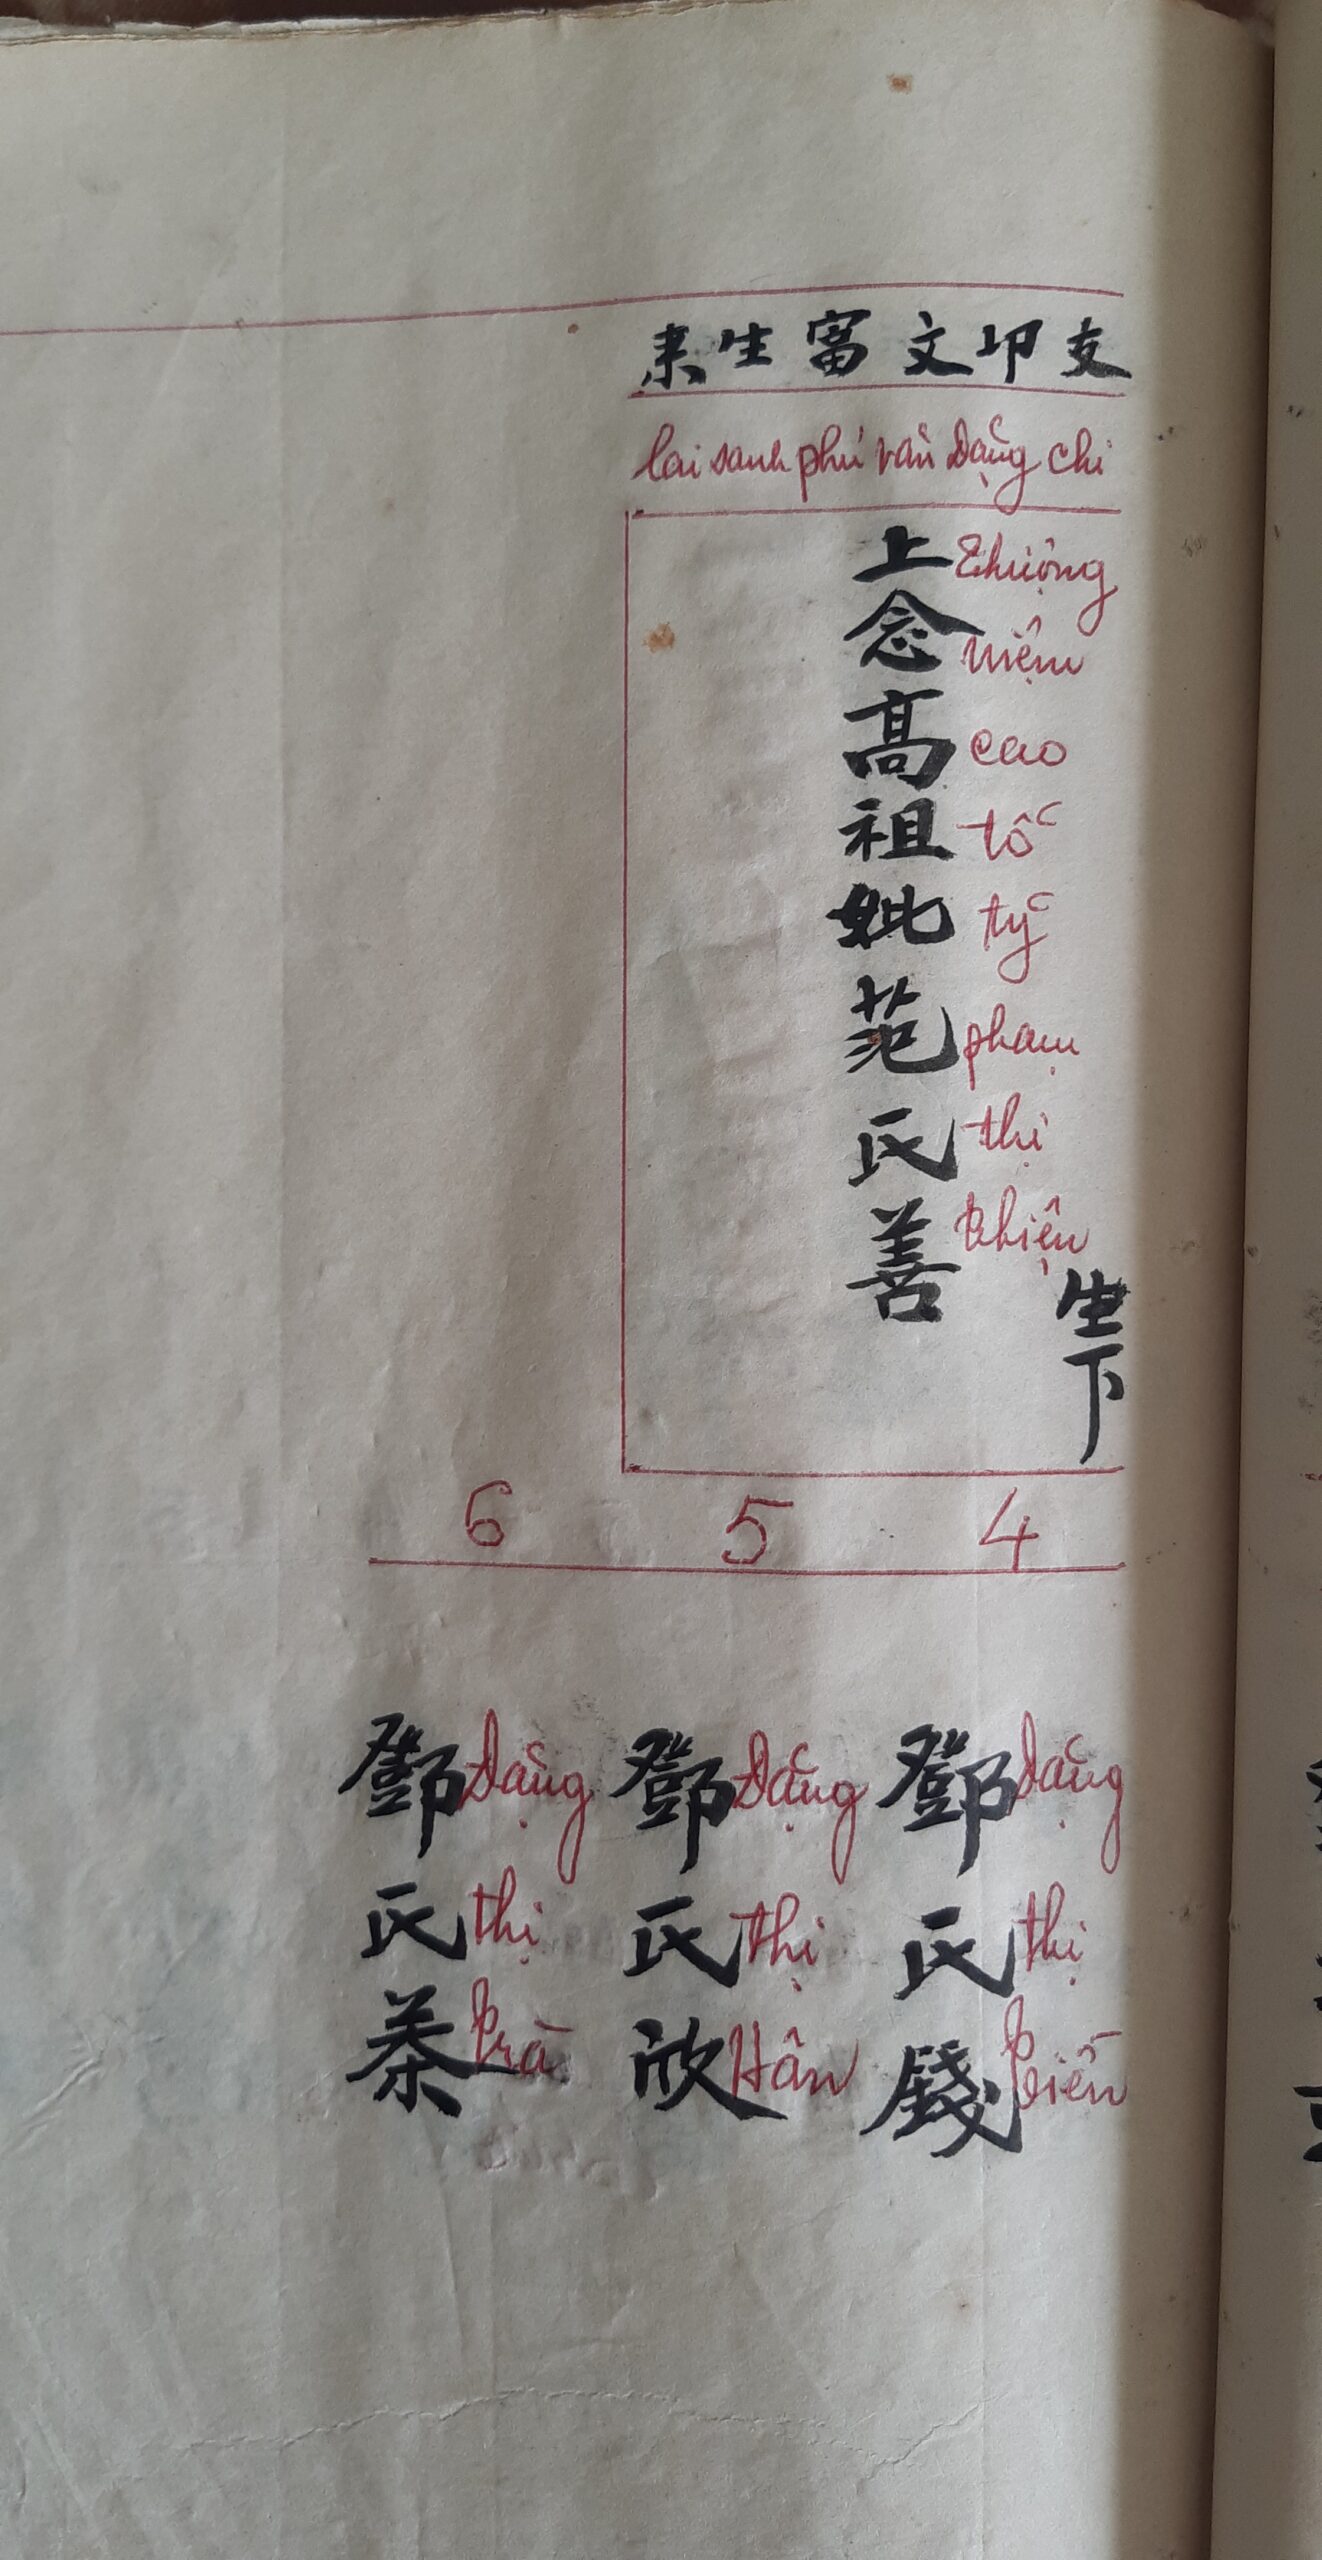 耒生富文邛支
lai sanh phú văn Đặng chi
上念高祖妣范氏善
Thượng niệm cao tổ tỷ phạm thị thiện
生下
4
5
6
鄧氏錢
Đặng thị tiền
鄧氏欣
Đặng thị Hân
鄧氏茶
Đặng thị trà